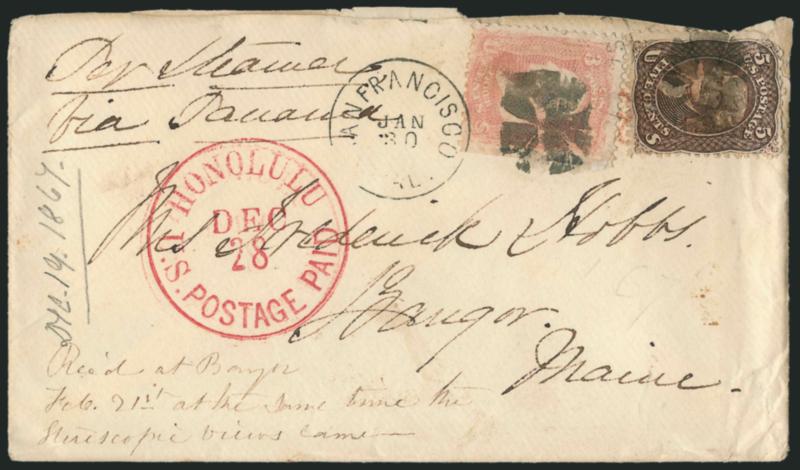 Per Steamer
via Panama
SAN FRANCISCO
JAN
30
CAL.
3
5
U.S. POSTAGE
FIVE CENTS
5
HONOLULU
DEC
28
U.S. POSTAGE PAID
Dec. 19. 1867.
Mrs Frederick Hobbs.
Bangor.
Maine.
Rec'd at Bangor
Feb. 21st at the same time the
Steriscopic views came